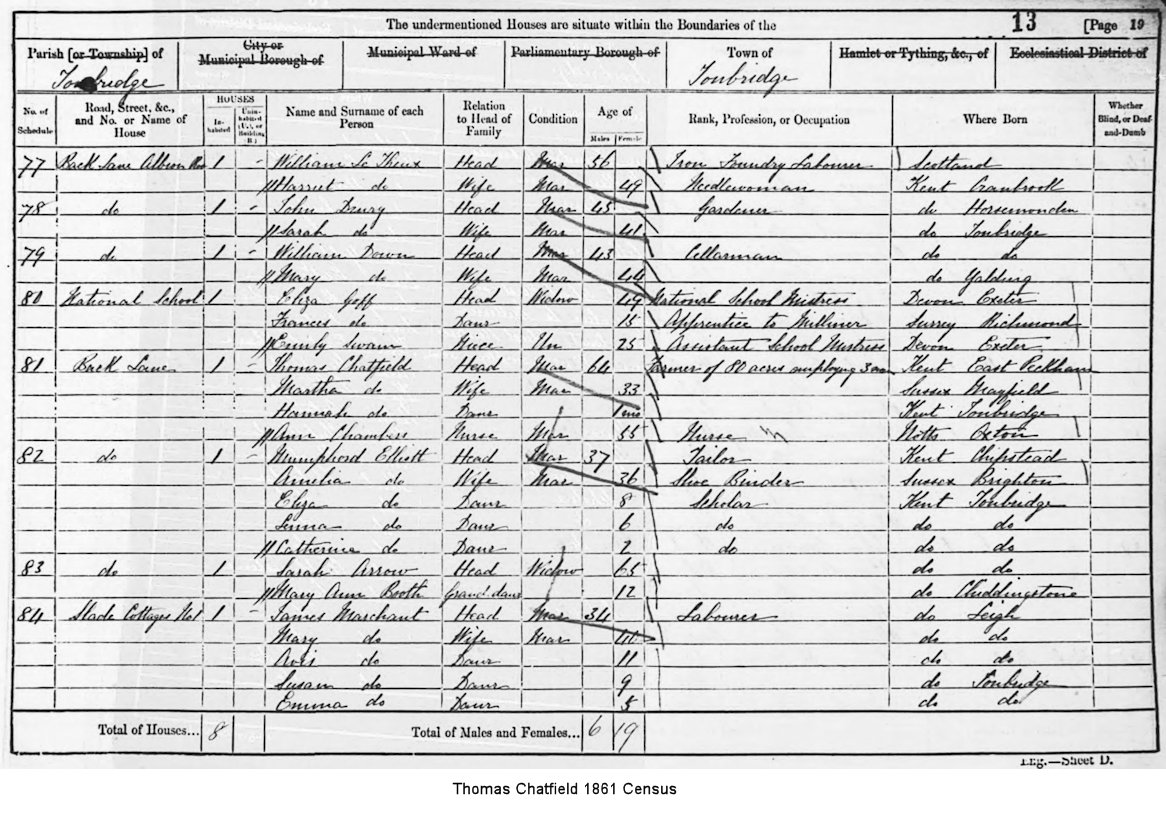 The undermentioned Houses are situate within the Boundaries of the 13 [Page 19
Parish [or Township] of City or Municipal Borough of Municipal Ward of Parliamentary Borough of Town of Hamlet or Tything, &c., of Ecclesiastical District of
Tonbridge Tonbridge
No. of Schedule Road, Street, &c., and No. or Name of House HOUSES Inhabited Uninhabited (U.), or Building (B.) Name and Surname of each Person Relation to Head of Family Condition Age of Males Females Rank, Profession, or Occupation Where Born Whether Blind, or Deaf-and-Dumb
77 Back Lane Albion 1 - William Head Mar 56 Iron Foundry Labourer Scotland
Harriet do Wife Mar 49 Needlewoman Kent Cranbrook
78 do 1 - John Drury Head Mar 45 Gardener do Horsmonden
Sarah do Wife Mar 41 do Tonbridge
79 do 1 - William Down Head Mar 43 Cellarman do do
Mary do Wife Mar 44 do Yalding
80 National School 1 Eliza Goff Head Widow 49 National School Mistress Devon Exeter
Frances do Daur 15 Apprentice to Milliner Surrey Richmond
Emily Swain Niece Un 25 Assistant School Mistress Devon Exeter
81 Back Lane 1 - Thomas Chatfield Head Mar 64 Farmer of 80 acres employing 3 men Kent East Peckham
Martha do Wife Mar 33 Sussex Mayfield
Hannah do Daur 1 mo Kent Tonbridge
Ann Chambers Nurse Mar 55 Nurse Notts Oxton
82 do 1 - Mumpherd Elliott Head Mar 37 Tailor Kent Chipstead
Amelia do Wife Mar 36 Shoe Binder Sussex Brighton
Eliza do Daur 8 Scholar Kent Tonbridge
do Daur 6 do do do
Catherine do Daur 2 do do do
83 do 1 Sarah Arrow Head Widow 65 do do
Mary Ann Booth Grand daur 12 do Chiddingstone
84 Slade Cottages No 1 1 - James Marchant Head Mar 34 Labourer do Leigh
Mary do Wife Mar 40 do do
Avis do Daur 11 do do
Susan do Daur 9 do Tonbridge
Emma do Daur 5 do do
Total of Houses... 8 Total of Males and Females... 6 19
Eng.—Sheet D.
Thomas Chatfield 1861 Census